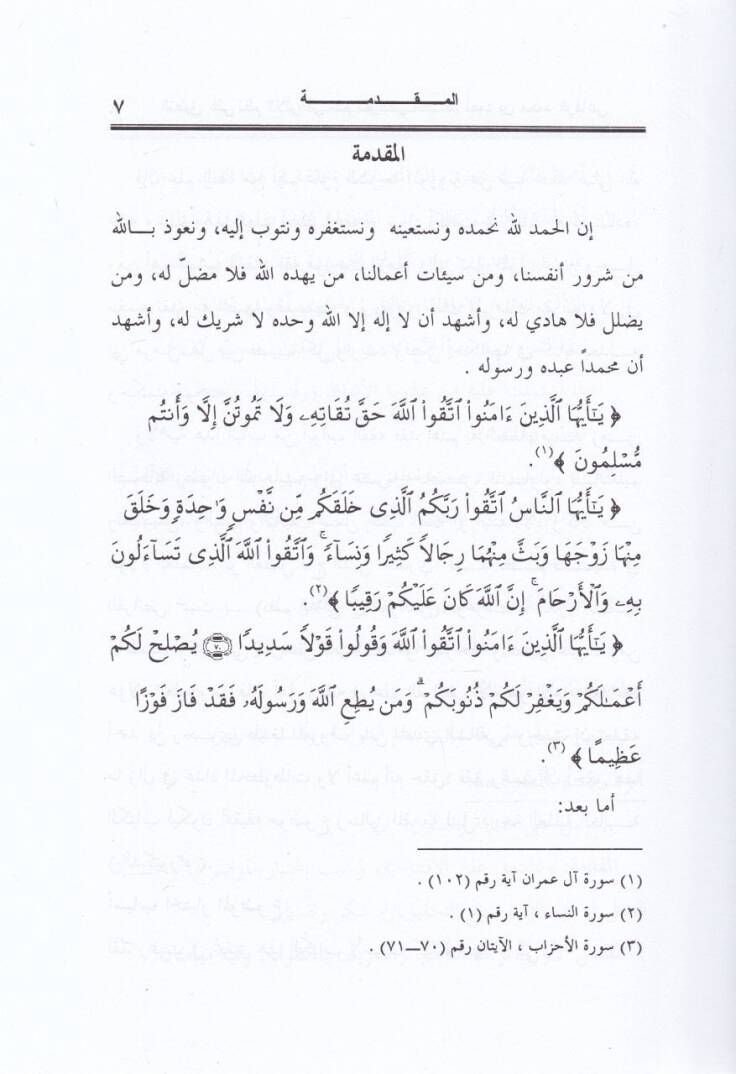 المقدمة ٧
المقدمة
إن الحمد لله نحمده ونستعينه ونستغفره ونتوب إليه، ونعوذ بالله
من شرور أنفسنا، ومن سيئات أعمالنا، من يهده الله فلا مضل له، ومن
يضلل فلا هادي له، وأشهد أن لا إله إلا الله وحده لا شريك له، وأشهد
أن محمداً عبده ورسوله .
﴿ يَـٰٓأَيُّهَا ٱلَّذِينَ ءَامَنُواْ ٱتَّقُواْ ٱللَّهَ حَقَّ تُقَاتِهِۦ وَلَا تَمُوتُنَّ إِلَّا وَأَنتُم
مُّسْلِمُونَ ﴾(١).
﴿ يَـٰٓأَيُّهَا ٱلنَّاسُ ٱتَّقُواْ رَبَّكُمُ ٱلَّذِى خَلَقَكُم مِّن نَّفْسٍ وَٰحِدَةٍ وَخَلَقَ
مِنْهَا زَوْجَهَا وَبَثَّ مِنْهُمَا رِجَالاً كَثِيرًا وَنِسَآءً ۚ وَٱتَّقُواْ ٱللَّهَ ٱلَّذِى تَسَآءَلُونَ
بِهِۦ وَٱلْأَرْحَامَ ۚ إِنَّ ٱللَّهَ كَانَ عَلَيْكُمْ رَقِيبًا ﴾(٢).
﴿ يَـٰٓأَيُّهَا ٱلَّذِينَ ءَامَنُواْ ٱتَّقُواْ ٱللَّهَ وَقُولُواْ قَوْلاً سَدِيدًا ٧٠ يُصْلِحْ لَكُمْ
أَعْمَـٰلَكُمْ وَيَغْفِرْ لَكُمْ ذُنُوبَكُمْ ۗ وَمَن يُطِعِ ٱللَّهَ وَرَسُولَهُۥ فَقَدْ فَازَ فَوْزًا
عَظِيمًا ﴾(٣).
أما بعد:
(١) سورة آل عمران آية رقم (١٠٢) .
(٢) سورة النساء ، آية رقم (١) .
(٣) سورة الأحزاب ، الآيتان رقم (٧٠–٧١) .